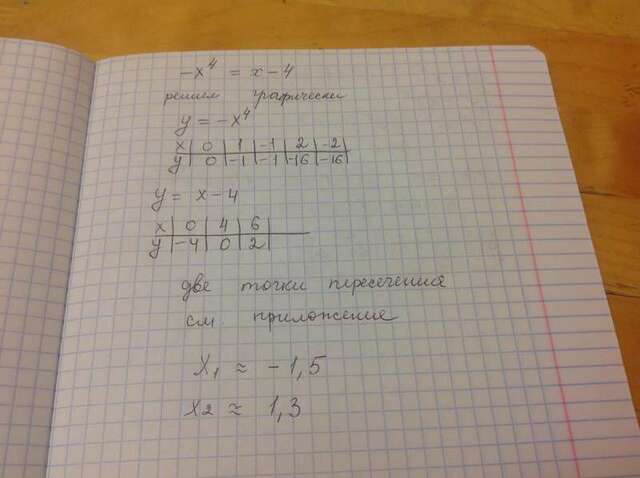 -x⁴ = x - 4
решим графически
y = -x⁴
x | 0 | 1 | -1 | 2 | -2
y | 0 | -1 | -1 | -16 | -16
y = x - 4
x | 0 | 4 | 6
y | -4 | 0 | 2
две точки пересечения
см приложение
x₁ ≈ -1,5
x₂ ≈ 1,3